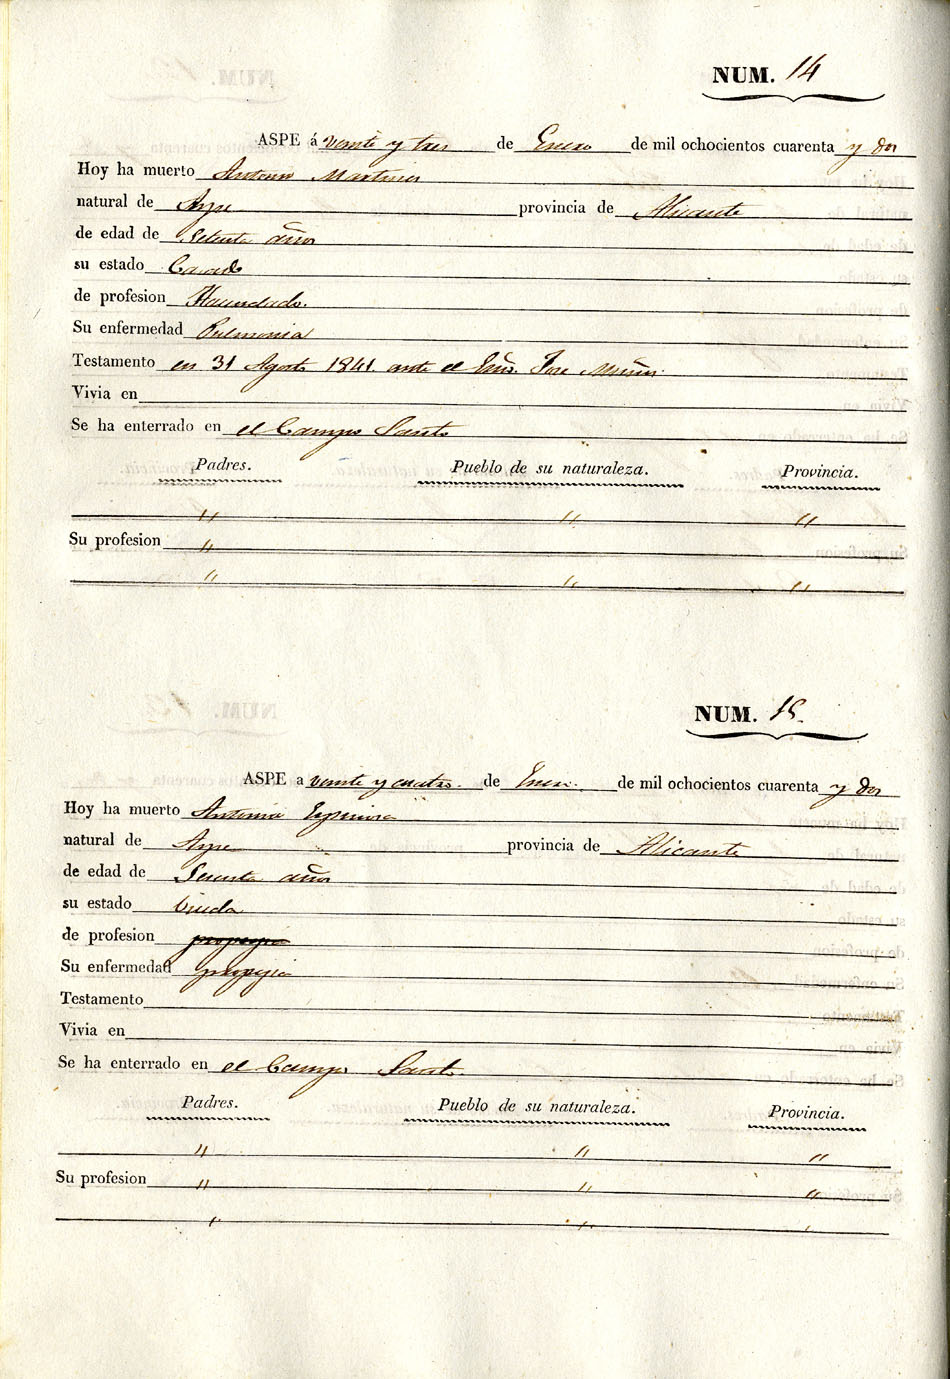 NUM. 14
ASPE á veinte y tres de Enero de mil ochocientos cuarenta y dos
Hoy ha muerto Antonio Martinez
natural de Aspe provincia de Alicante
de edad de Setenta años
su estado Casado
de profesion Hacendado.
Su enfermedad Pulmonia
Testamento en 31 Agosto 1841 ante el Jose
Vivia en
Se ha enterrado en el Campo Santo
Padres. Pueblo de su naturaleza. Provincia.
" " "
Su profesion "
" " "
NUM. 15.
ASPE a veinte y cuatro. de Enero. de mil ochocientos cuarenta y dos
Hoy ha muerto Antonia Espinosa
natural de Aspe provincia de Alicante
de edad de años
su estado Viuda
de profesion
Su enfermedad
Testamento
Vivia en
Se ha enterrado en el Campo Santo.
Padres. Pueblo de su naturaleza. Provincia.
" " "
Su profesion " " "
" " "